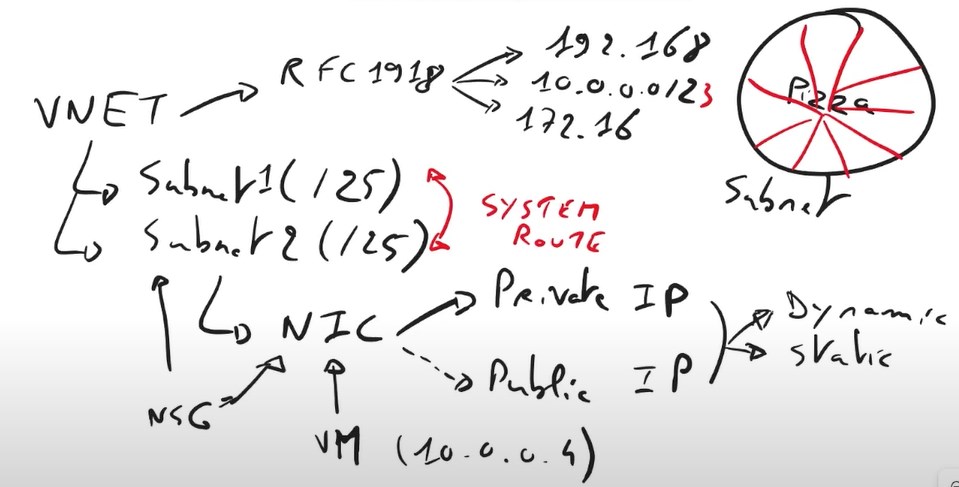 VNET
RFC1918
192.168
10.0.0.0/23
172.16
Pizza
Subnet
Subnet1 (/25)
Subnet 2 (/25)
SYSTEM
ROUTE
NIC
Private IP
Public IP
Dynamic
Static
NSG
VM (10.0.0.4)